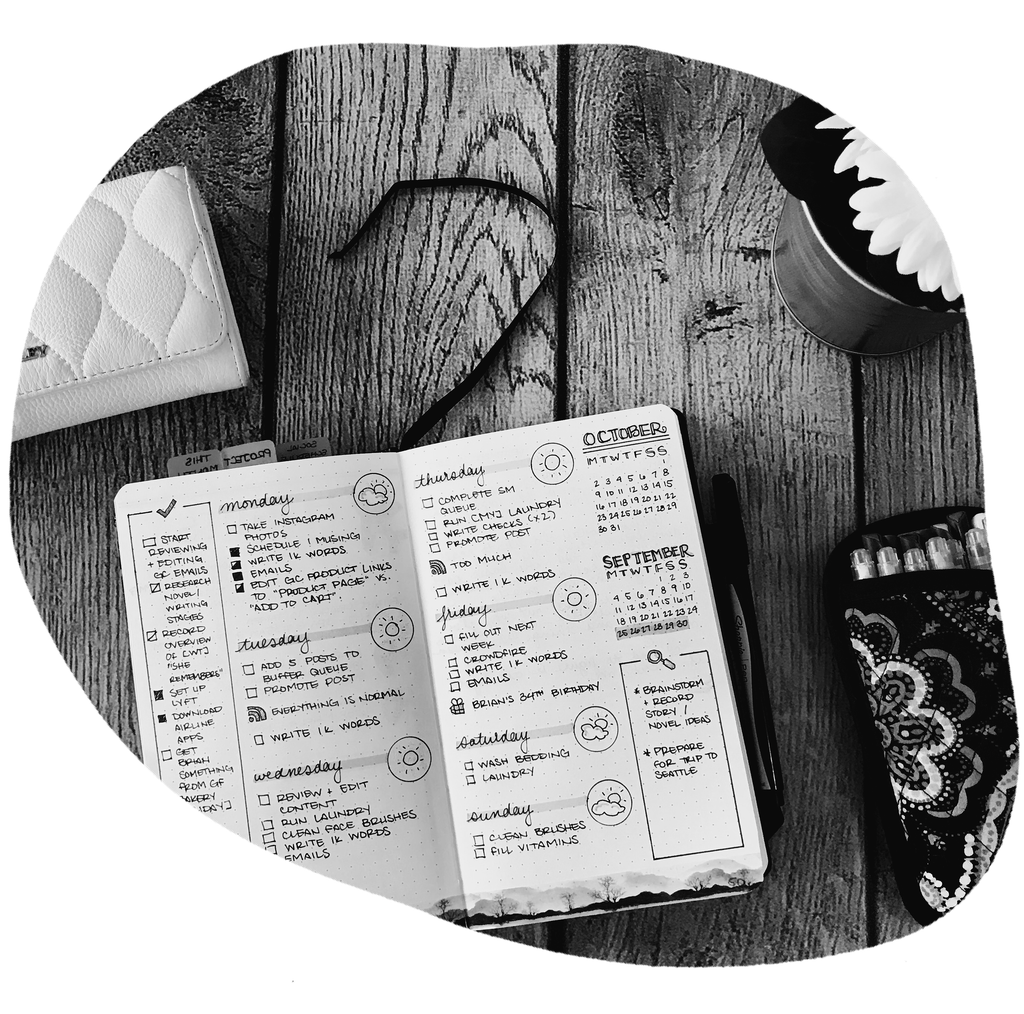 THIS
PROJECT
SOCIAL
START
REVIEWING
+ EDITING
GC EMAILS
RESEARCH
NOVEL/
WRITING
STAGES
RECORD
OVERVIEW
OF LWTJ
"SHE
REMEMBERS"
SET UP
LYFT
DOWNLOAD
AIRLINE
APPS
GET
BRIAN
SOMETHING
FROM GF
monday
TAKE INSTAGRAM
PHOTOS
SCHEDULE 1 MUSING
WRITE 1K WORDS
EMAILS
EDIT GC PRODUCT LINKS
TO "PRODUCT PAGE" VS.
"ADD TO CART".
tuesday
ADD 5 POSTS TO
BUFFER QUEUE
PROMOTE POST
EVERYTHING IS NORMAL
WRITE 1K WORDS
wednesday
REVIEW + EDIT
CONTENT
RUN LAUNDRY
CLEAN FACE BRUSHES
WRITE 1K WORDS
EMAILS
thursday
COMPLETE SM
QUEUE
RUN [MY] LAUNDRY
WRITE CHECKS (x2)
PROMOTE POST
TOO MUCH
WRITE 1K WORDS
friday
FILL OUT NEXT
WEEK
CROWDFIRE
WRITE 1K WORDS
EMAILS
BRIAN'S 34TH BIRTHDAY
saturday
WASH BEDDING
LAUNDRY
sunday
CLEAN BRUSHES
FILL VITAMINS
OCTOBER
M T W T F S S
1
2 3 4 5 6 7 8
9 10 11 12 13 14 15
16 17 18 19 20 21 22
23 24 25 26 27 28 29
30 31
SEPTEMBER
M T W T F S S
1 2 3
4 5 6 7 8 9 10
11 12 13 14 15 16 17
18 19 20 21 22 23 24
25 26 27 28 29 30
* BRAINSTORM
+ RECORD
STORY /
NOVEL IDEAS
* PREPARE
FOR TRIP TO
SEATTLE